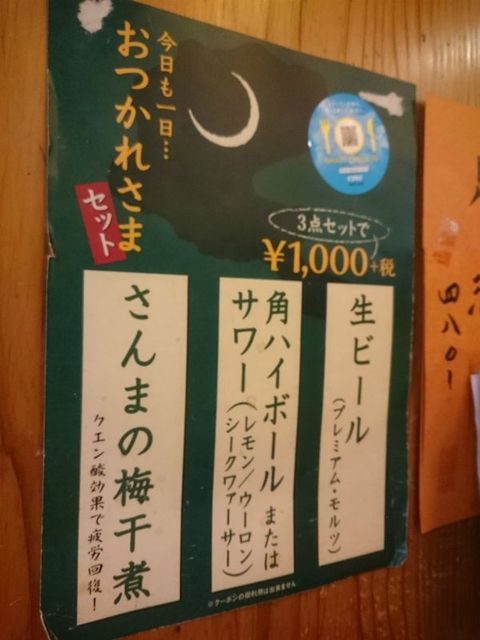 今日も一日…
おつかれさま
セット
3点セットで
¥1,000+税
生ビール
(プレミアム・モルツ)
角ハイボールまたは
サワー(レモン/ウーロン/
シークワァーサー)
さんまの梅干煮
クエン酸効果で疲労回復!
※クーポンの御利用は出来ません
四八〇-